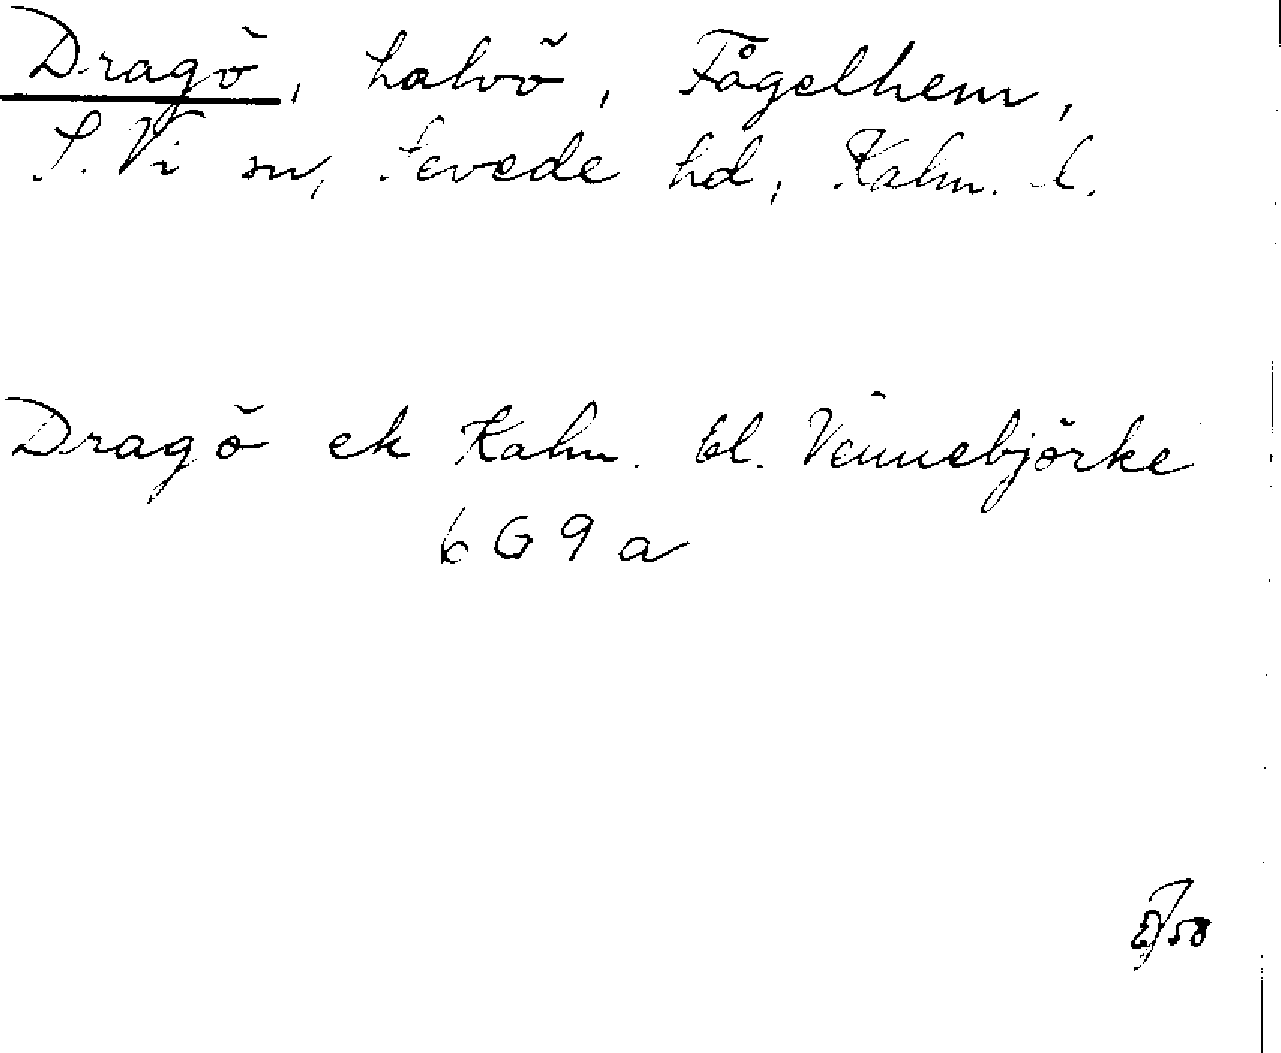 Dragö, halvö, Fågelhem,
S. Vi sn, Sevede hd, Kalm. l.
Dragö ek Kalm. bl. Vennebjörke
6 G 9 a